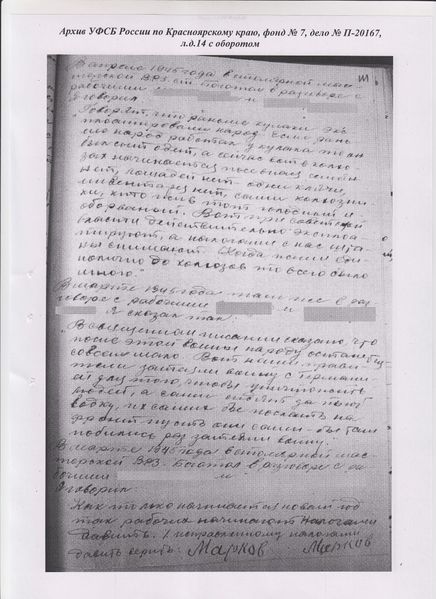 Архив УФСБ России по Красноярскому краю, фонд № 7, дело № П-20167,
л.д.14 с оборотом
В апреле 1945 года в столярной мас-
терской ВРЗ в разговоре с
рабочими и
говорил
"Говорят, что раньше кулаки экс-
плоатировали народ. Если рань-
ше народ работал у кулака то он
был сыт одет, а сейчас вот в колхо
зах начинается посевная семян
нет, лошадей нет одни клячи,
нет, сами колхозни-
ки, кто жив тот голодный и
оборванный. Вот при советской
власти действительно эксплоа
тируют, а налогами с нас шта-
ны снимают. Когда жили еди-
нолично до колхозов то всего было
много."
В марте 1945 года там же в раз
говоре с рабочими и
Я сказал так:
В священном писании сказано, что
после этой войны народу останется
совсем мало. Вот наши прави-
тели затеяли войну с Германи-
ей для того, чтобы уничтожить
людей, а сами сидят за
водку, их самих бы послать на
фронт пусть они сами бы там
побились раз затеяли войну.
В марте 1945 года в столярной мас-
терской ВРЗ. в разговоре с ра-
бочими
говорил:
Как только начинается новый год
так рабочих начинают налогами
давить. / исправленному налогами
давить верить: Марков Марков